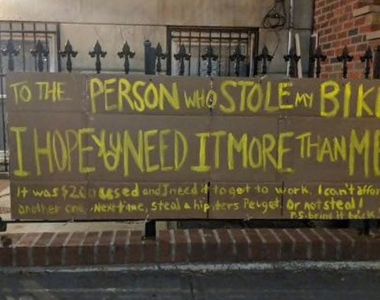 TO THE PERSON WHO STOLE MY BIKE
I HOPE YOU NEED IT MORE THAN ME
It was $200 used and I need it to get to work. I can't afford
another one. Next time, steal a hipsters Peuget. Or not steal!
P.S: bring it back